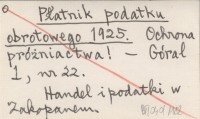 Płatnik podatku
obrotowego 1925. Ochrona
próżniactwa! — Góral
1, nr 22.
Handel i podatki w
Zakopanem.